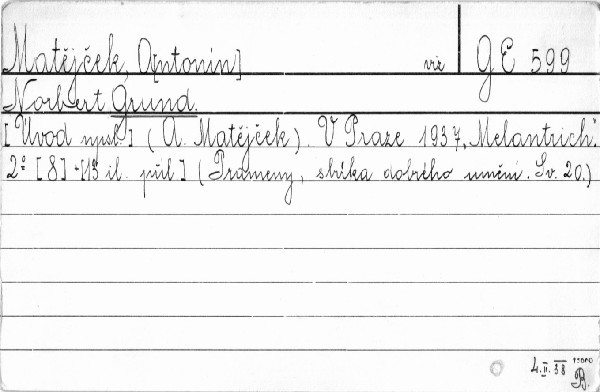 Matějček, A[ntonín] viz GE 599
Norbert Grund.
[Úvod napsal] (A. Matějček). V Praze 1937, Melantrich.
2° [8] + [13 il. příl.] (Prameny, sbírka dobrého umění. Sv. 20.)
4. II. 38
B.